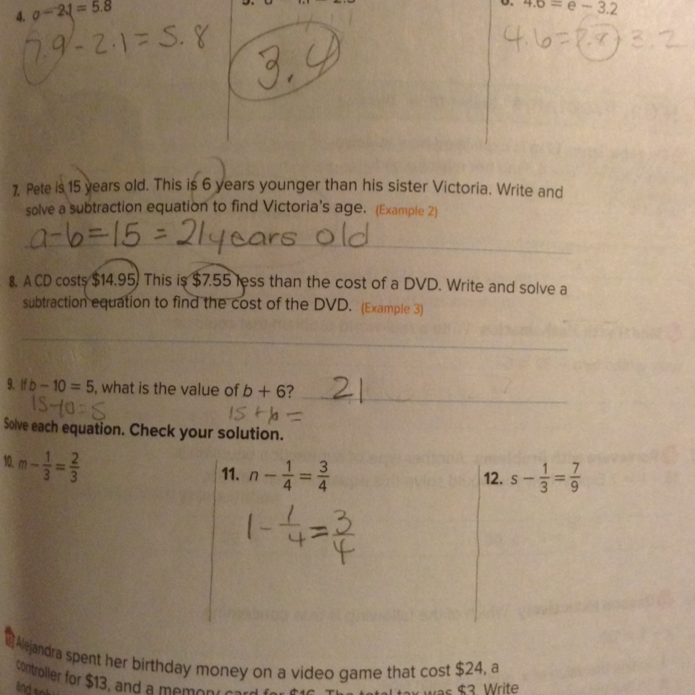 4. a - 2.1 = 5.8
6. 4.6 = e - 3.2
7.9 - 2.1 = 5.8
3.4
4.6 = 7.8 - 3.2
7. Pete is 15 years old. This is 6 years younger than his sister Victoria. Write and
solve a subtraction equation to find Victoria's age. (Example 2)
a-6=15 = 21years old
8. A CD costs $14.95. This is $7.55 less than the cost of a DVD. Write and solve a
subtraction equation to find the cost of the DVD. (Example 3)
9. If b - 10 = 5, what is the value of b + 6? 21
15-10=5 15+6=
Solve each equation. Check your solution.
10. m - 1/3 = 2/3
11. n - 1/4 = 3/4
12. s - 1/3 = 7/9
1 - 1/4 = 3/4
Alejandra spent her birthday money on a video game that cost $24, a
controller for $13, and a memory card for $16. The total tax was $3. Write